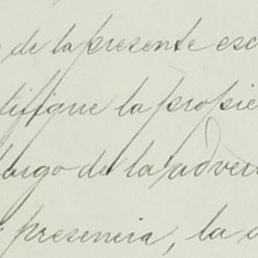 de la presente esc
tifique la propie
luego de la adver
presencia, la